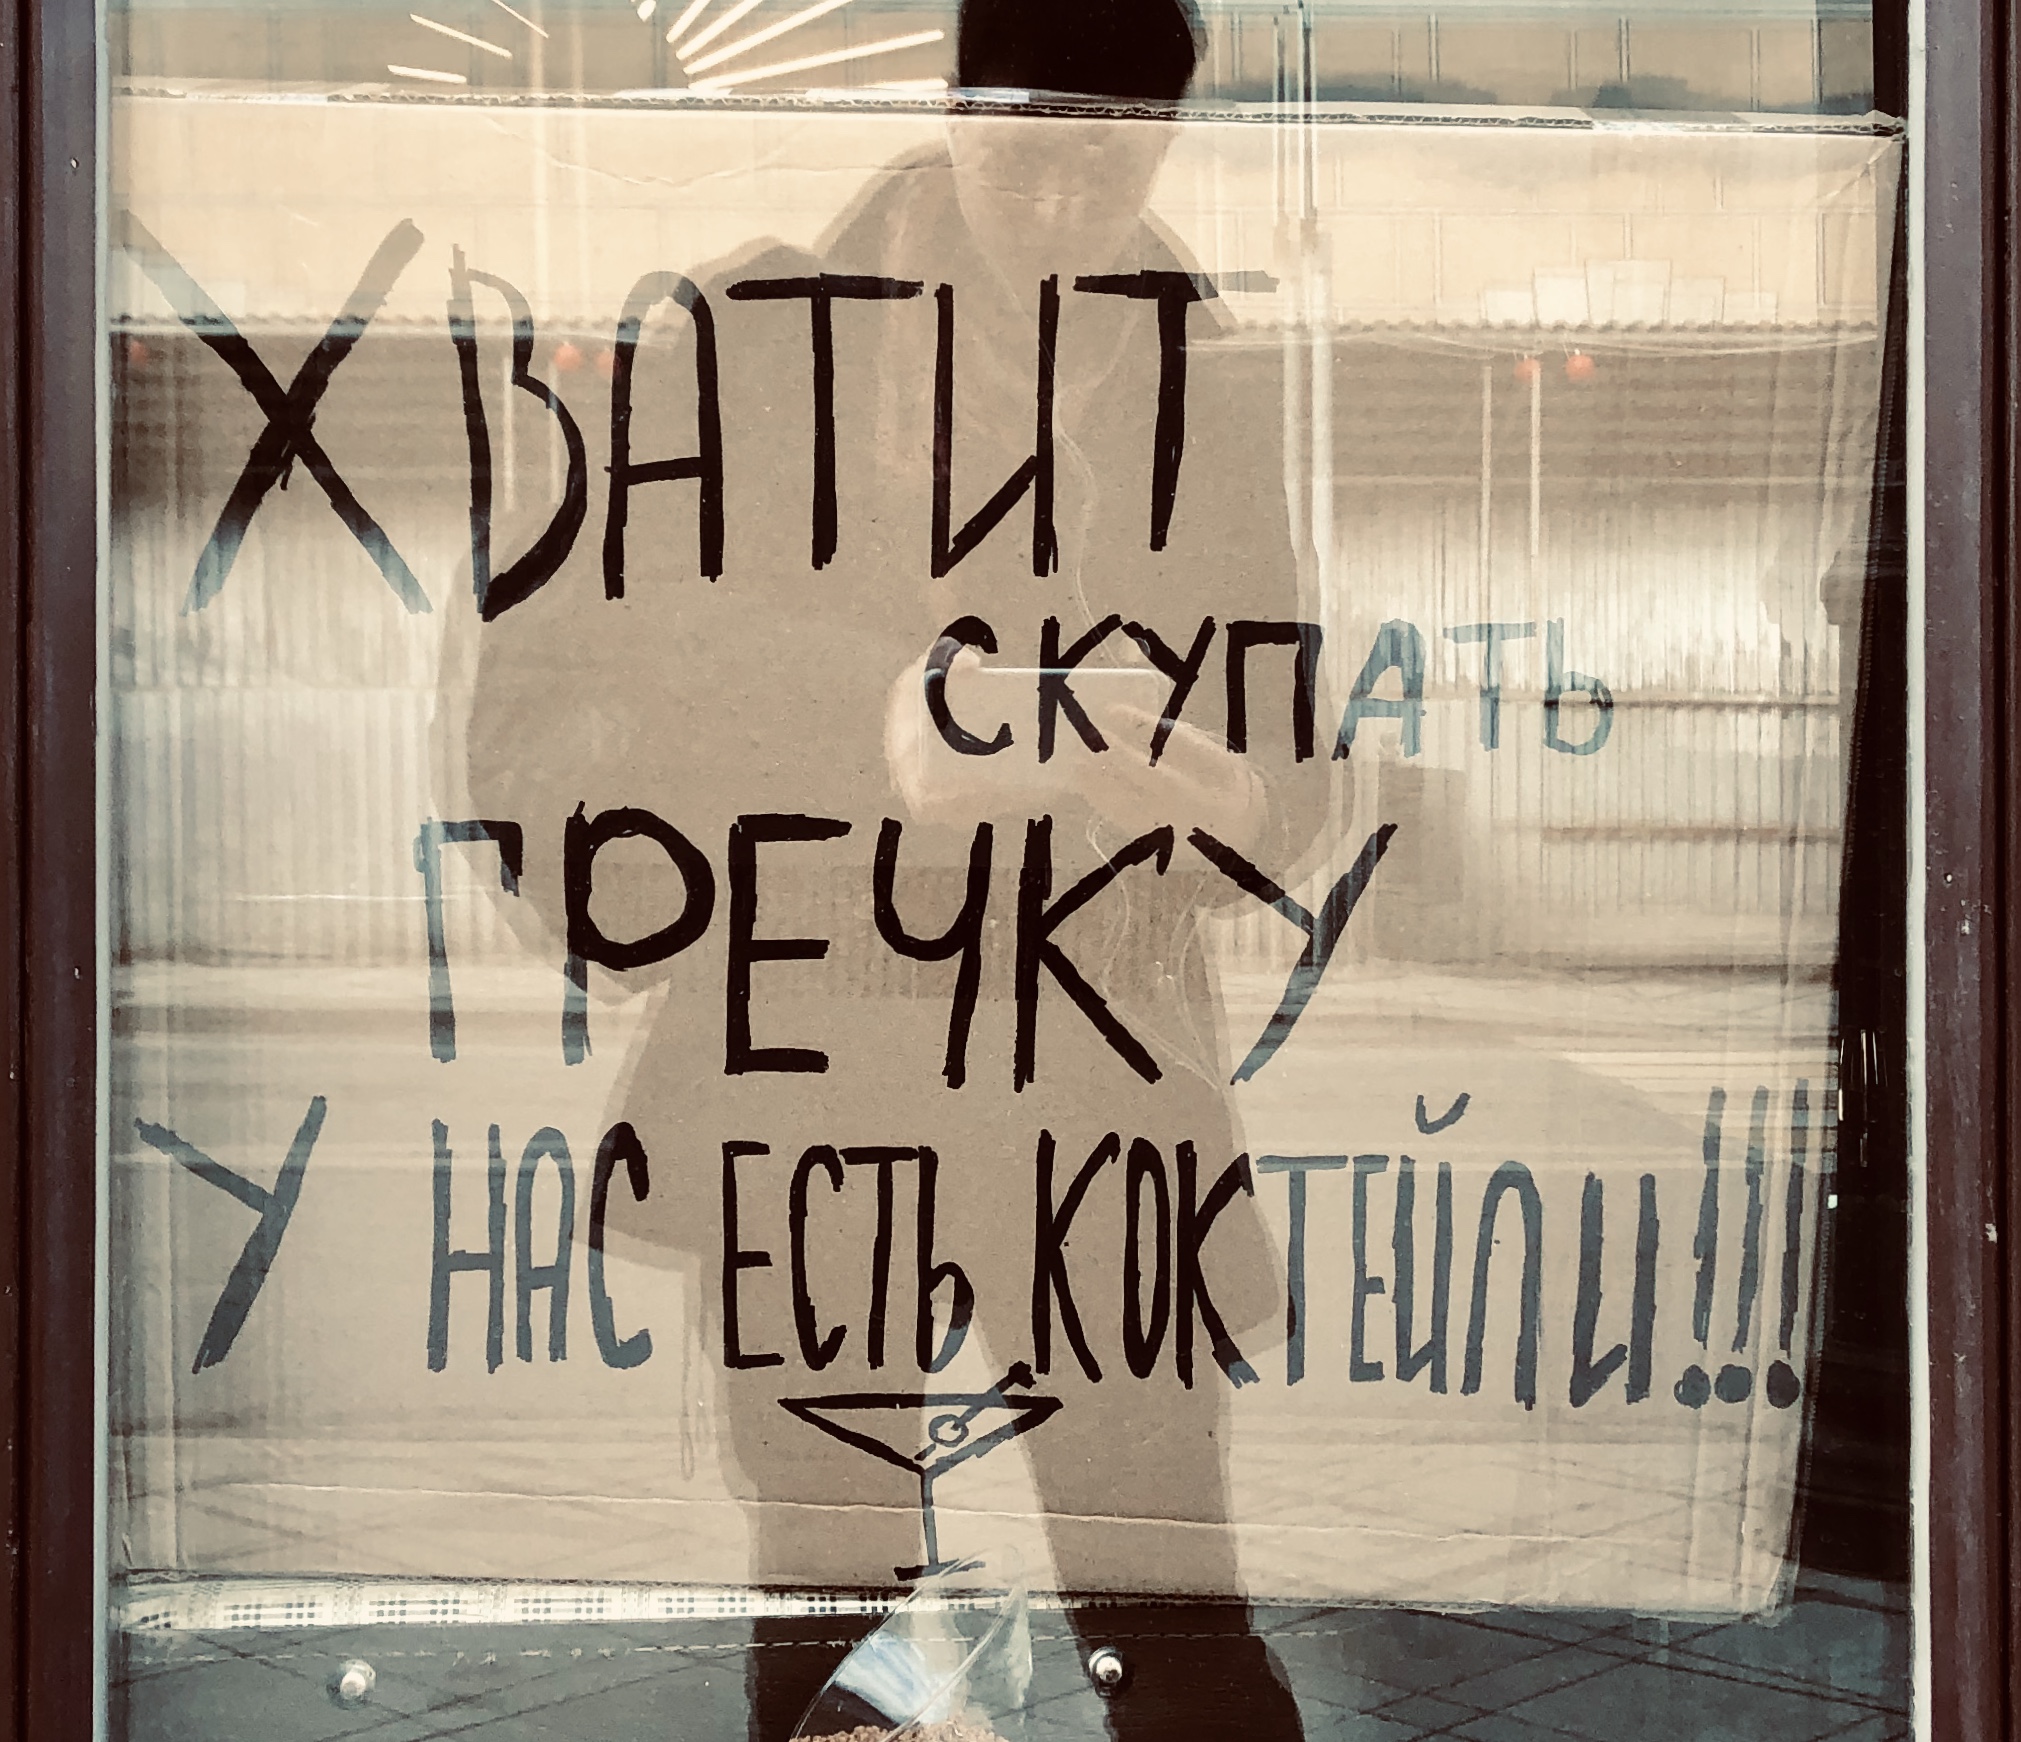 ХВАТИТ
СКУПАТЬ
ГРЕЧКУ
У НАС ЕСТЬ КОКТЕЙЛИ!!!